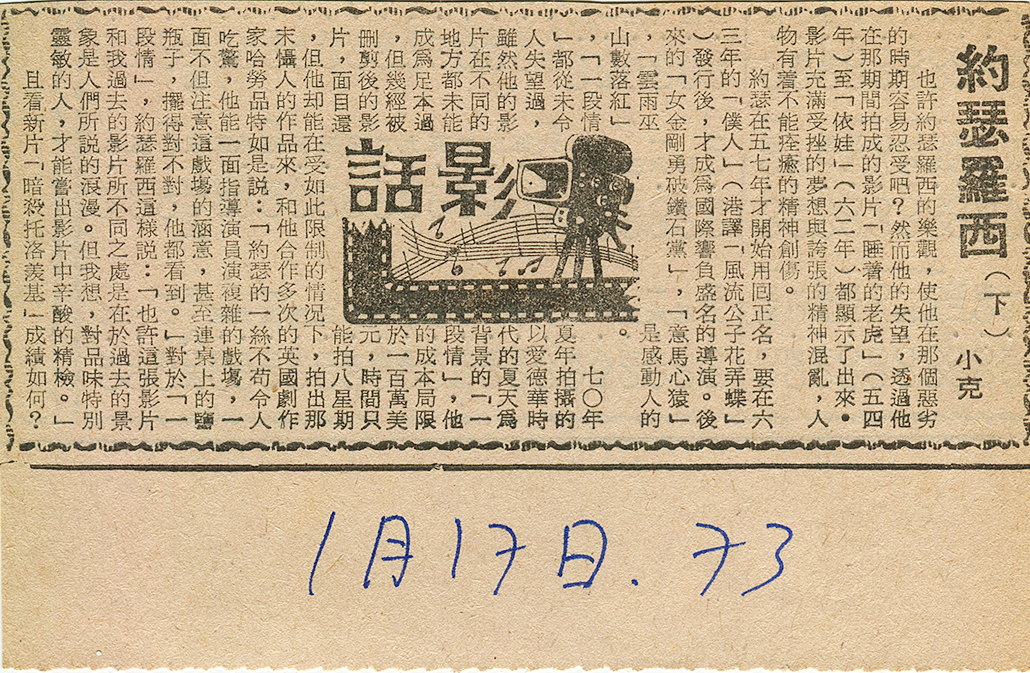 約瑟羅西(下)
小克
也許約瑟羅西的樂觀，使他在那個惡劣
的時期容易忍受吧？然而他的失望，透過他
在那期間拍成的影片「睡着的老虎」(五四
年)至「依娃」(六二年)都顯示了出來。
影片充滿受挫的夢想與誇張的精神混亂，人
物有着不能痊癒的精神創傷。
約瑟在五七年才開始用回正名，要在六
三年的「僕人」(港譯「風流公子花弄蝶」
)發行後，才成爲國際響負盛名的導演。後
來的「女金剛勇破鑽石黨」，「意馬心猿」
，「雲雨巫
山數落紅」
，「一段情
」都從未令
人失望過，
雖然他的影
片在不同的
地方都未能
成爲足本過
，但幾經被
刪剪後的影
片，面目還
影話
是感動人的
。
七〇年
夏年拍攝的
以愛德華時
代的夏天爲
背景的「一
段情」，他
的成本局限
於一百萬美
元，時間只
能拍八星期
，但他却能在受如此限制的情况下，拍出那
末懾人的作品來，和他合作多次的英國劇作
家哈勞品特如是説：「約瑟的一絲不苟令人
吃驚，他能一面指導演員演複雜的戲塲，一
面不但注意這戲塲的涵意，甚至連桌上的鹽
瓶子，擺得對不對，他都看到。」對於「一
段情」，約瑟羅西這樣説：「也許這張影片
和我過去的影片所不同之處是在於過去的景
象是人們所説的浪漫。但我想，對品味特別
靈敏的人，才能嘗出影片中辛酸的精檢。」
且看新片「暗殺托洛美基」成績如何？
1月17日．73